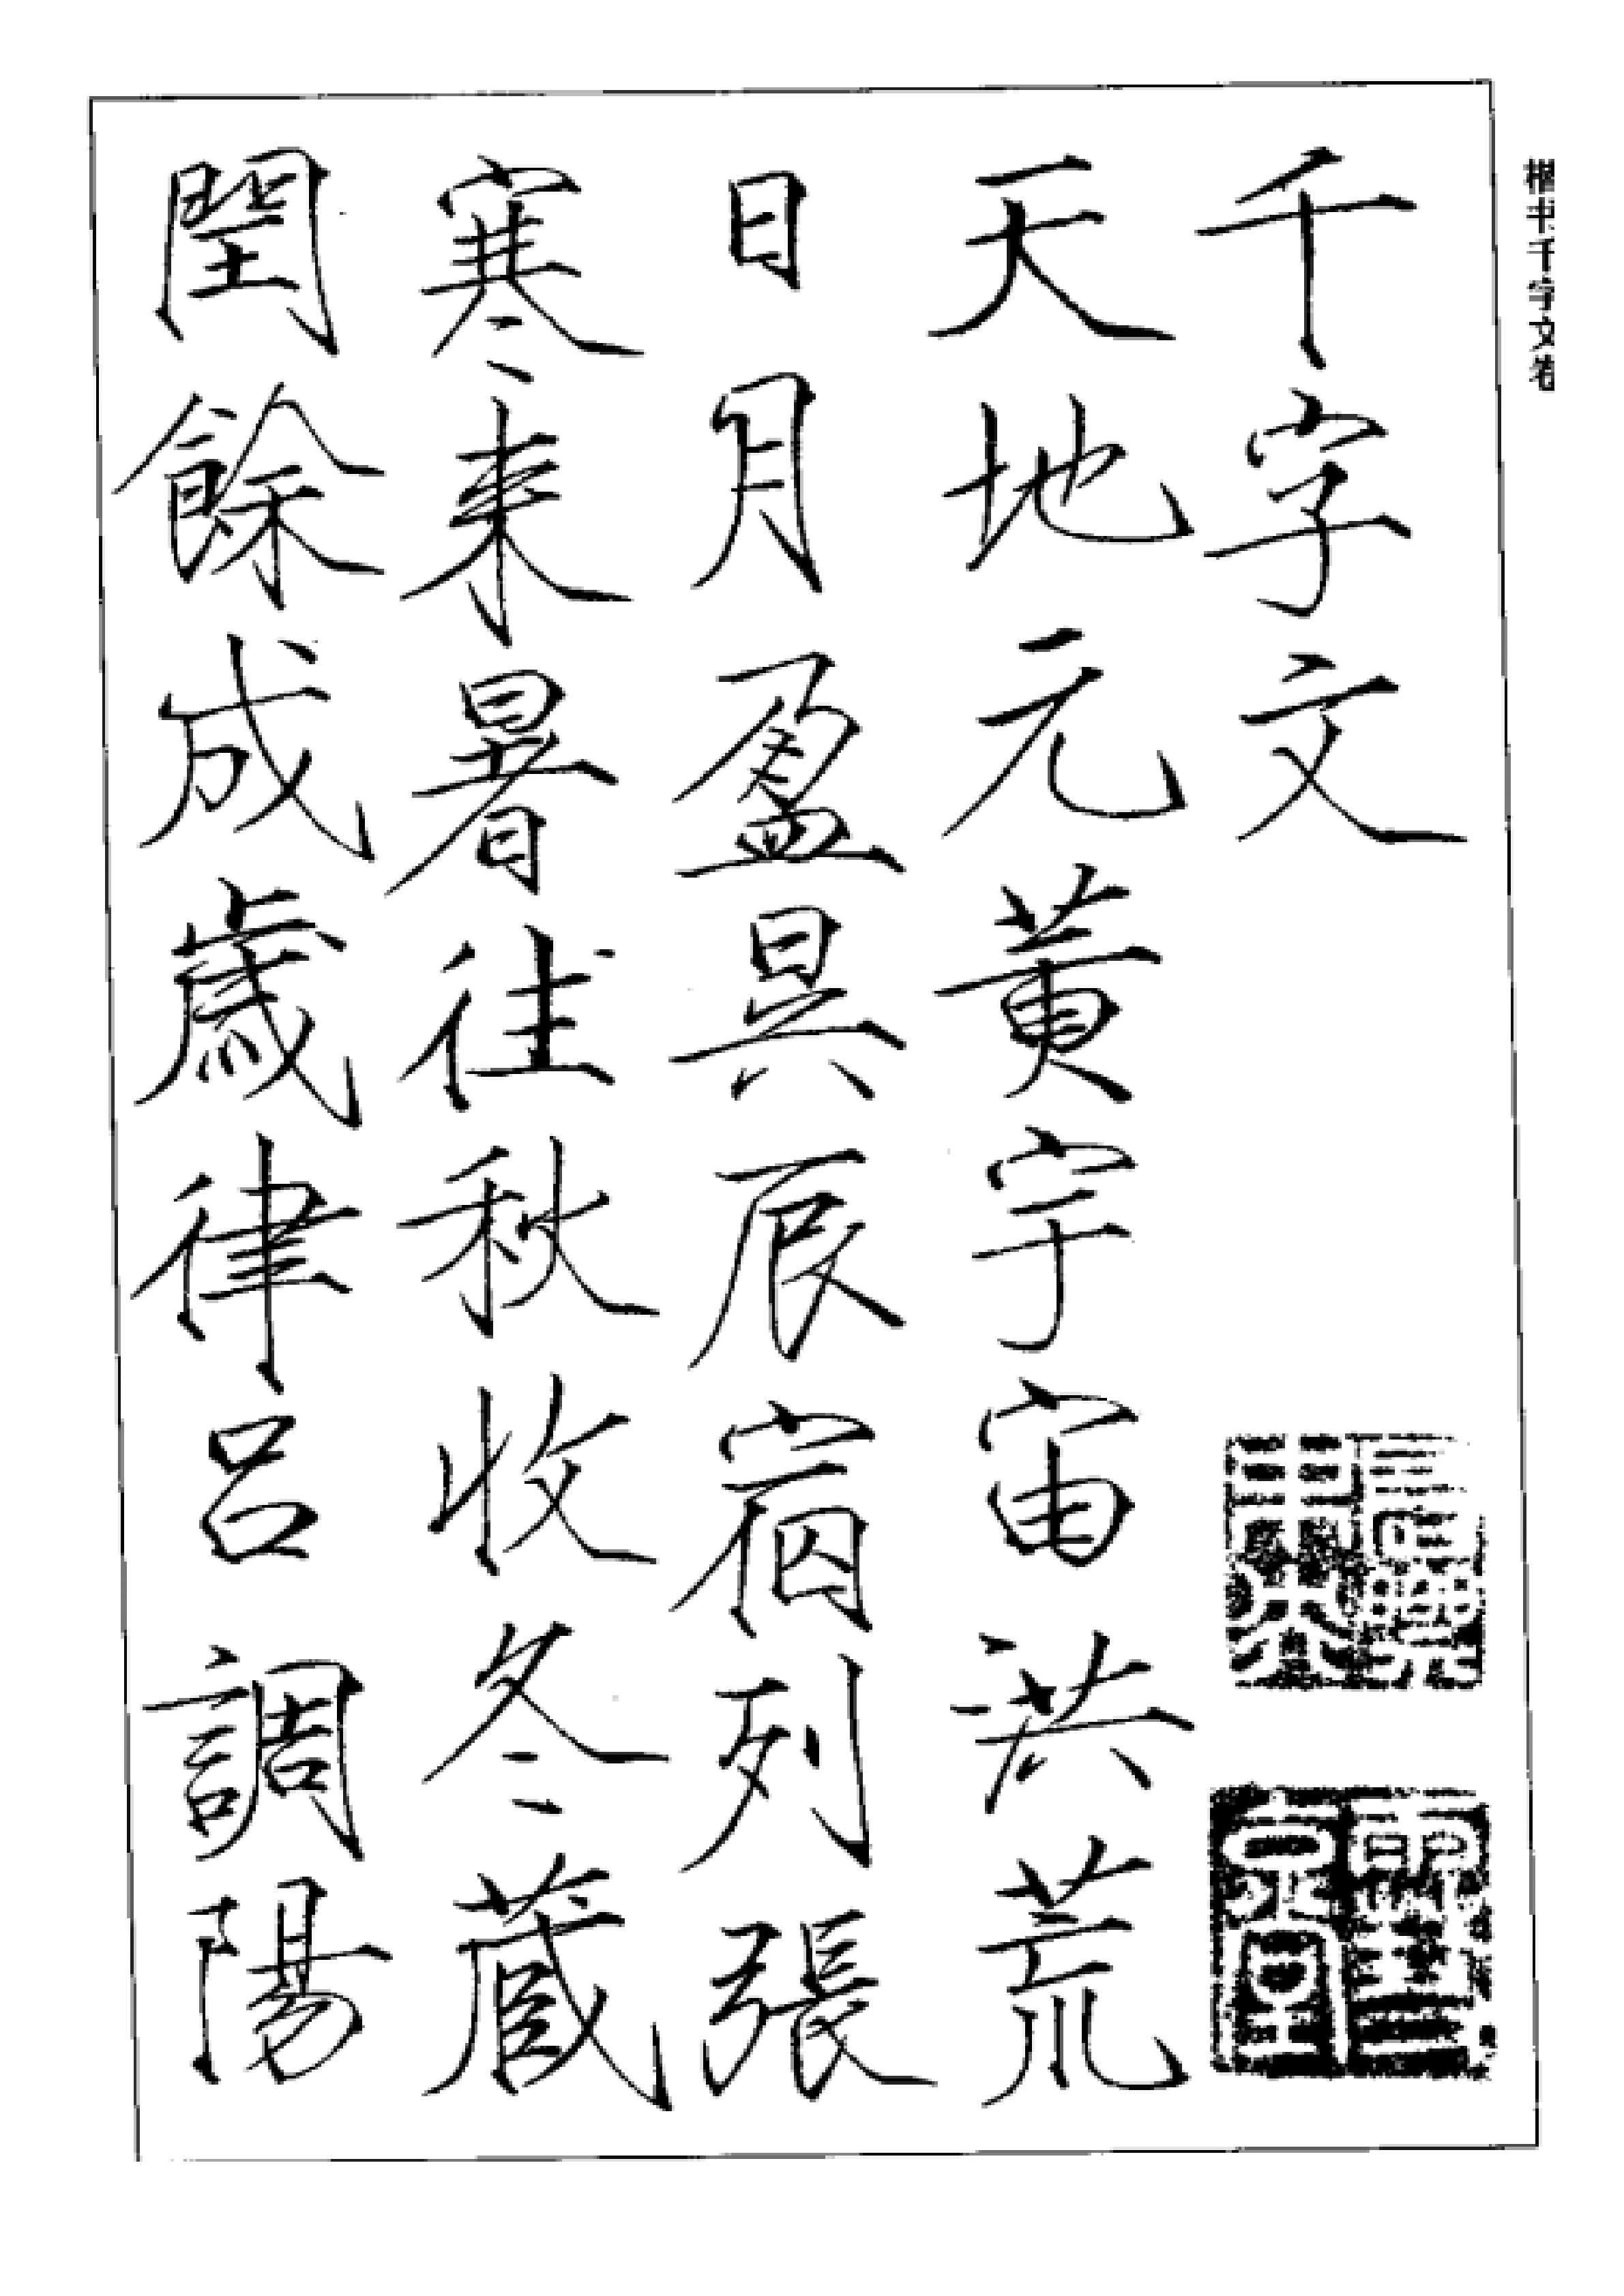 楷书千字文卷
千字文
天地元黄宇宙洪荒
日月盈昃辰宿列張
寒来暑往秋收冬蔵
閏餘成歲律呂調陽